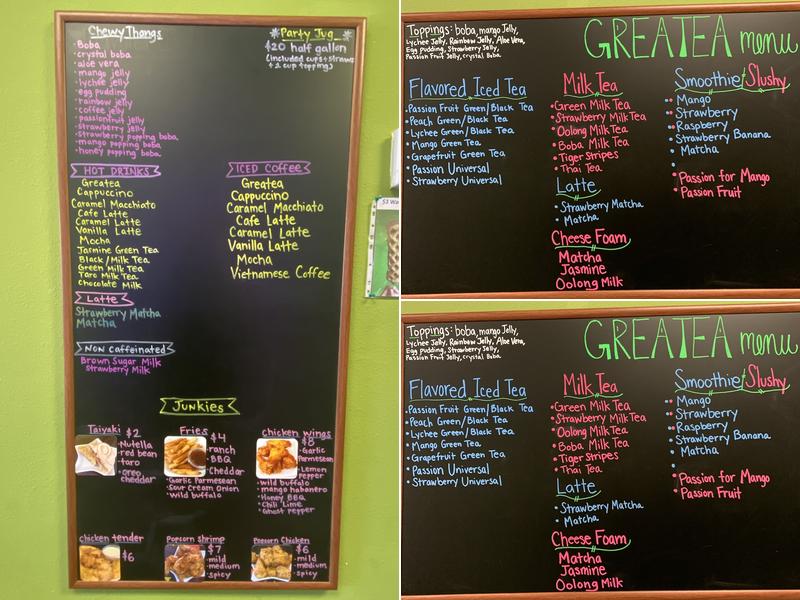 Chewy Thangs
Boba
crystal boba
aloe vera
mango jelly
lychee jelly
egg pudding
rainbow jelly
coffee jelly
passionfruit jelly
strawberry jelly
strawberry popping boba
mango popping boba
honey popping boba
Party Jug
$20 half gallon
(included cups+straws
+ 1 cup topping)
HOT DRINKS
Greatea
Cappuccino
Caramel Macchiato
Cafe Latte
Caramel Latte
Vanilla Latte
Mocha
Jasmine Green Tea
Black/Milk Tea
Green Milk Tea
Taro Milk Tea
Chocolate Milk
ICED COFFEE
Greatea
Cappuccino
Caramel Macchiato
Cafe Latte
Caramel Latte
Vanilla Latte
Mocha
Vietnamese Coffee
Latte
Strawberry Matcha
Matcha
NON CAFFEINATED
Brown Sugar Milk
Strawberry Milk
JUNKIES
Taiyaki $2
Nutella
red bean
taro
oreo
cheddar
Fries $4
ranch
BBQ
Cheddar
Garlic Parmesean
Sour Cream Onion
Wild buffalo
Chicken wings
$8
Garlic
Parmesean
Lemon
Pepper
Wild buffalo
mango habanero
Honey BBQ
Chili Lime
Ghost Pepper
Chicken tender
$6
Popcorn Shrimp
$7
mild
medium
spicy
Popcorn Chicken
$6
mild
medium
spicy
Toppings: boba, mango Jelly,
Lychee Jelly, Rainbow Jelly, Aloe Vera,
Egg pudding, Strawberry Jelly,
Passion Fruit Jelly, crystal Boba
GREATEA menu
Flavored Iced Tea
Passion Fruit Green/Black Tea
Peach Green/Black Tea
Lychee Green/Black Tea
Mango Green Tea
Grapefruit Green Tea
Passion Universal
Strawberry Universal
Milk Tea
Green Milk Tea
Strawberry Milk Tea
Oolong Milk Tea
Boba Milk Tea
Tiger Stripes
Thai Tea
Latte
Strawberry Matcha
Matcha
Cheese Foam
Matcha
Jasmine
Oolong Milk
Smoothie/Slushy
Mango
Strawberry
Raspberry
Strawberry Banana
Matcha
Passion for Mango
Passion Fruit
Toppings: boba, mango Jelly,
Lychee Jelly, Rainbow Jelly, Aloe Vera,
Egg pudding, Strawberry Jelly,
Passion Fruit Jelly, crystal Boba
GREATEA menu
Flavored Iced Tea
Passion Fruit Green/Black Tea
Peach Green/Black Tea
Lychee Green/Black Tea
Mango Green Tea
Grapefruit Green Tea
Passion Universal
Strawberry Universal
Milk Tea
Green Milk Tea
Strawberry Milk Tea
Oolong Milk Tea
Boba Milk Tea
Tiger Stripes
Thai Tea
Latte
Strawberry Matcha
Matcha
Cheese Foam
Matcha
Jasmine
Oolong Milk
Smoothie/Slushy
Mango
Strawberry
Raspberry
Strawberry Banana
Matcha
Passion for Mango
Passion Fruit